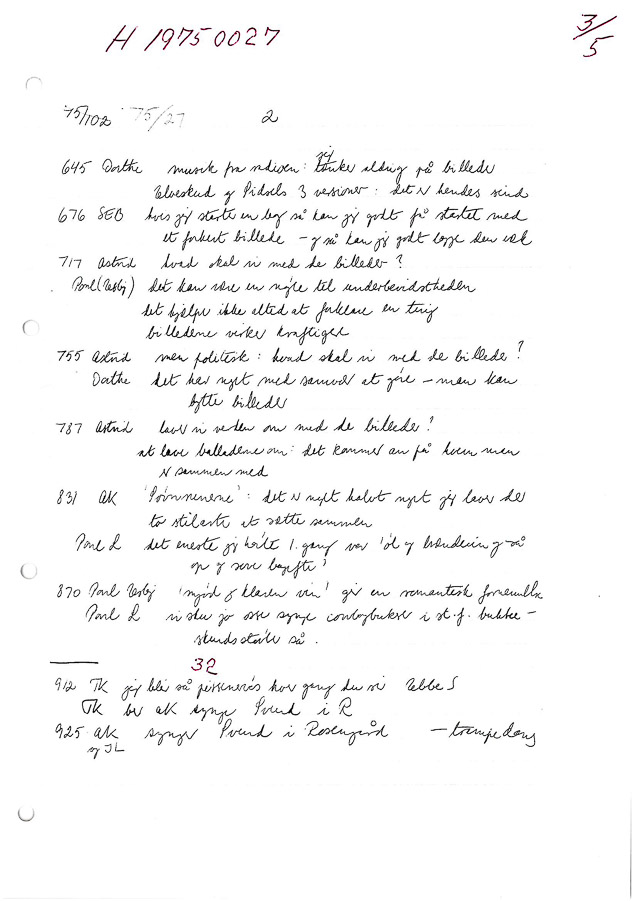 H 1975 0027
3/5
75/102 75/27 2
645 Dorthe musik fra radioen: jeg tænker aldrig på billeder
Elveskud og Sidsels 3 versioner: det er hendes sind
676 SEB hvis jeg starter en leg så kan jeg godt få startet med
et forkert billede – og så kan jeg godt lægge den væk
717 Astrid hvad skal vi med de billeder?
Poul (Nesbj) det kan være en nøgle til underbevidstheden
det hjælper ikke altid at forklare en ting
billederne virker kraftigere
755 Astrid men politisk: hvad skal vi med de billeder?
Dorthe det har noget med samvær at gøre – man kan
bytte billeder
787 Astrid laver vi verden om med de billeder?
at lave balladerne om: det kommer an på hvem man
er sammen med
831 AK det er noget halvt noget jeg laver der
to stilarter at sætte sammen
Poul L det eneste jeg hørte 1. gang var 'øl og brændevin og så
op og sove bagefter'
870 Poul 'mjød og klaren vin' gir en romantisk fornemmelse
Poul L vi sku jo osse synge cowboybukser i st. f. bukke-
skindsstøvler så.
32
912 TK jeg blir så pissenervøs hver gang du si'r Ebbe S
TK ber AK synge Svend i R
925 AK synger Svend i Rosengård – trampedans
og JL